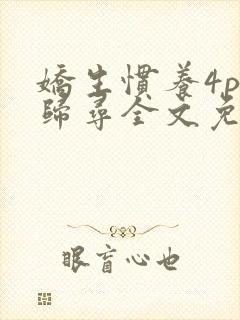 嬌生慣養4p
歸尋全文免
眼盲心也